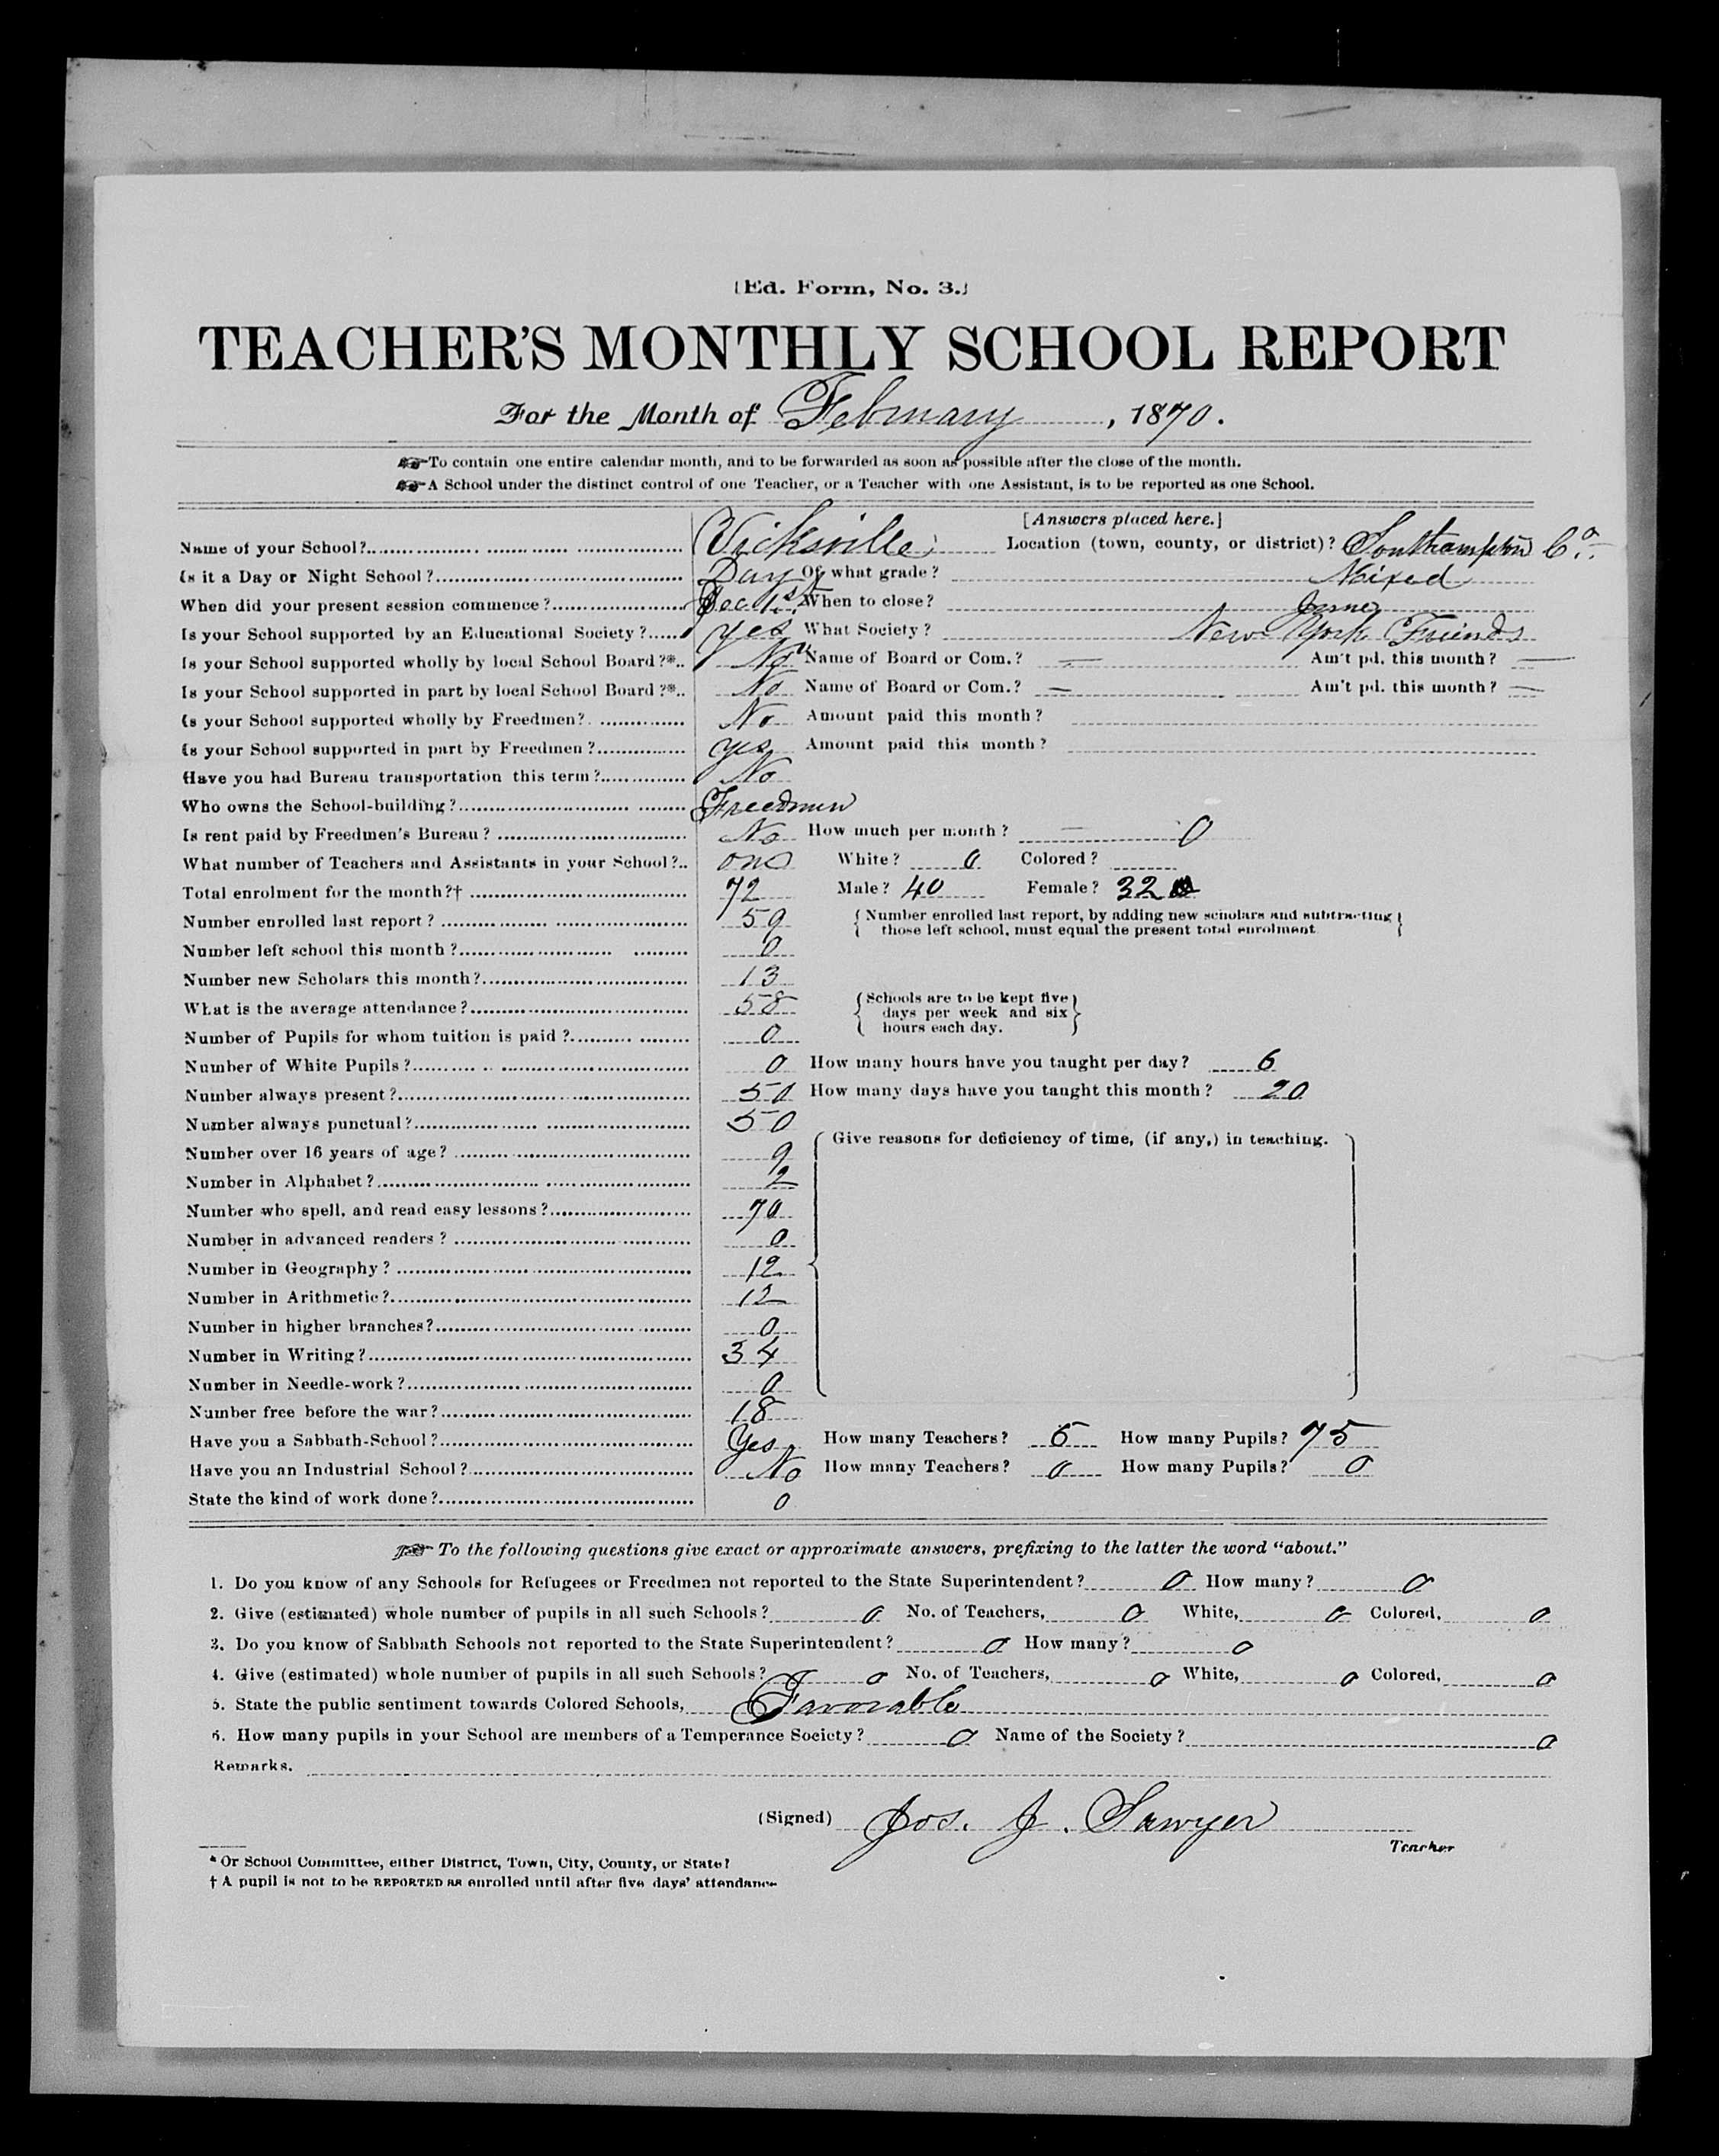 [Ed. Form, No. 3.]
TEACHER'S MONTHLY SCHOOL REPORT
For the Month of February, 1870.
To contain one entire calendar month, and to be forwarded as soon as possible after the close of the month.
A School under the distinct control of one Teacher, or a Teacher with one Assistant, is to be reported as one School.
[Answers placed here.]
Name of your School? Vicksville Location (town, county, or district)? Southampton Co.
Is it a Day or Night School? Day Of what grade? Mixed
When did your present session commence? Dec 1st When to close?
Is your School supported by an Educational Society? yes What Society? New York Friends
Is your School supported wholly by local School Board?* No Name of Board or Com.? — Am't pd. this month? —
Is your School supported in part by local School Board?* No Name of Board or Com.? — Am't pd. this month? —
Is your School supported wholly by Freedmen? No Amount paid this month?
Is your School supported in part by Freedmen? yes Amount paid this month?
Have you had Bureau transportation this term? No
Who owns the School-building? Freedmen
Is rent paid by Freedmen's Bureau? No How much per month? — 0
What number of Teachers and Assistants in your School? one White? 0 Colored?
Total enrolment for the month?† 72 Male? 40 Female? 32
Number enrolled last report? 59 { Number enrolled last report, by adding new scholars and subtracting
those left school, must equal the present total enrolment }
Number left school this month? 0
Number new Scholars this month? 13
What is the average attendance? 58 { Schools are to be kept five
days per week and six
hours each day. }
Number of Pupils for whom tuition is paid? 0
Number of White Pupils? 0 How many hours have you taught per day? 6
Number always present? 50 How many days have you taught this month? 20
Number always punctual? 50
Give reasons for deficiency of time, (if any,) in teaching.
Number over 16 years of age? 9
Number in Alphabet? 2
Number who spell, and read easy lessons? 70
Number in advanced readers? 0
Number in Geography? 12
Number in Arithmetic? 12
Number in higher branches? 0
Number in Writing? 34
Number in Needle-work? 0
Number free before the war? 18
Have you a Sabbath-School? Yes How many Teachers? 5 How many Pupils? 75
Have you an Industrial School? No How many Teachers? 0 How many Pupils? 0
State the kind of work done? 0
To the following questions give exact or approximate answers, prefixing to the latter the word "about."
1. Do you know of any Schools for Refugees or Freedmen not reported to the State Superintendent? 0 How many? 0
2. Give (estimated) whole number of pupils in all such Schools? 0 No. of Teachers, 0 White, 0 Colored, 0
3. Do you know of Sabbath Schools not reported to the State Superintendent? 0 How many? 0
4. Give (estimated) whole number of pupils in all such Schools? 0 No. of Teachers, 0 White, 0 Colored, 0
5. State the public sentiment towards Colored Schools, Favorable
6. How many pupils in your School are members of a Temperance Society? 0 Name of the Society? 0
Remarks.
(Signed) Jos. J. Sawyer
Teacher
* Or School Committee, either District, Town, City, County, or State?
† A pupil is not to be REPORTED as enrolled until after five days' attendance